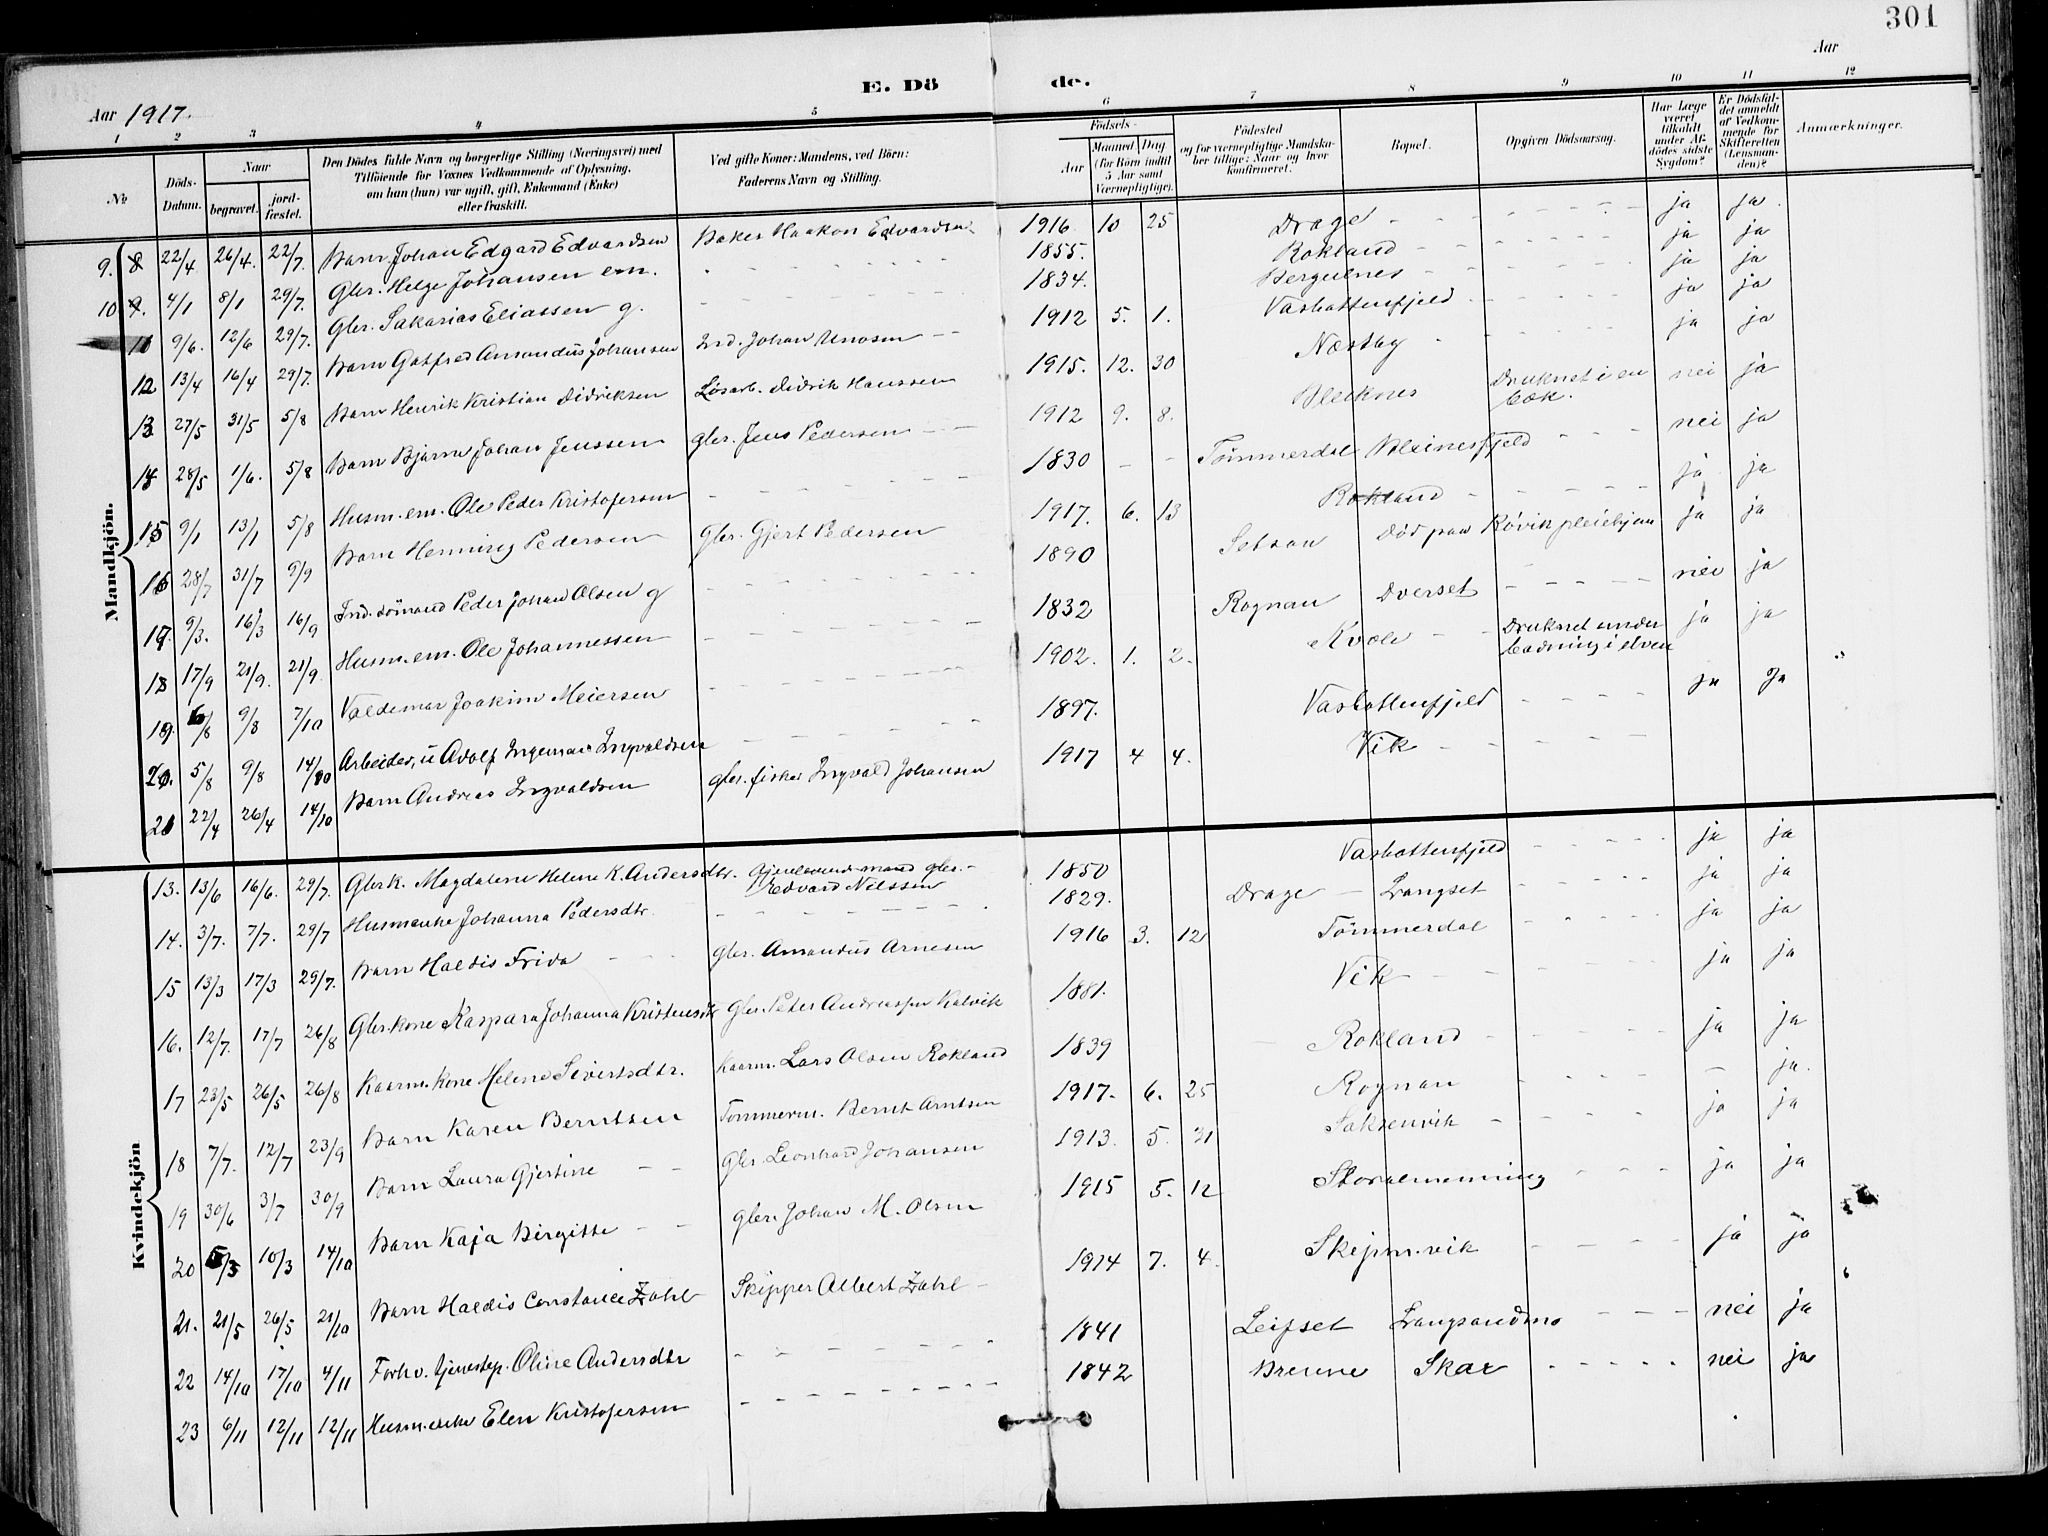 301
Aar
E. Dö de.
Aar 1917.
1 2 3 4 5 6 7 8 9 10 11 12
No
Döds-Datum.
Naar
begravet.
jord-fæstet.
Den Dödes fulde Navn og borgerlige Stilling (Næringsvei) med
Tilföiende for Voxnes Vedkommende af Oplysning,
om han (hun) var ugift, gift, Enkemand (Enke)
eller fraskilt.
Ved gifte Koner: Mandens, ved Börn:
Faderens Navn og Stilling.
Födsels-
Aar
Maaned Dag
(for Börn indtil
5 Aar samt
Værnepligtige).
Födested
og for værnepligtige Mandska-
ber tillige: Naar og hvor
konfirmeret.
Bopæl.
Opgiven Dödsaarsag.
Har Læge
været
tilkaldt
under Af-
dödes sidste
Sygdom?
Er Dödsfal-
det anmeldt
af Vedkom-
mende for
Skifteretten
(Lensman-
den)?
Anmærkninger.
Mandkjön.
9. 8 22/4 26/4. 22/7. Barn Johan Edgard Edvardsen Baker Haakon Edvardsen 1916. 10 25 Drage - ja ja
10 9. 4/1 8/1 29/7. Gbr. Helge Johansen em. 1855. Rokland - ja ja
11 9/6. 12/6 29/7. Gbr. Sakarias Eliassen g. 1834. Bergulnes - ja ja
12 13/4 16/4 29/7. Barn Gotfred Amandus Johansen Ind. Johan Unosen 1912 5. 1. Vasbottenfjeld ja ja
13 27/5 31/5 5/8 Barn Henrik Kristian Didriksen Løsarb. Didrik Hanssen 1915. 12. 30 Næstby - ja ja
14 28/5 1/6. 5/8 Barn Bjarne Johan Jenssen gbr. Jens Pedersen 1912 9. 8. Druknet i en bæk. nei ja
15 9/1 13/1 5/8 Husm. em. Ole Peder Kristofersen 1830 - - Tömmerdal nei ja
16 28/7 31/7 9/9 Barn Henning Pedersen gbr. Gjert Pedersen 1917. 6. 13 Rokland - ja ja
17 9/3. 16/3 16/9 Ind. sömand Peder Johan Olsen g 1890 Setsaa Död paa Røvik pleiehjem ja ja
18 17/9 21/9. 21/9. Husm. em. Ole Johannessen 1832 Rognan Dverset nei ja
19. 6/8 9/8 7/10 Valdemar Joakim Meiersen 1902. 1. 2. Kvæle - Druknet under badning i elven ja ja
20. 5/8 9/8 14/10 Arbeider, u Adolf Ingemar Ingvaldsen 1897. Vasbottenfjeld ja ja
21 22/4 26/4 14/10 Barn Andreas Ingvaldsen gbr. fisker Ingvald Johansen 1917 4 4. Vik
Kvindekjön
13. 13/6 16/6. 29/7. Gbrk. Magdalene Helene K. Andersdtr. gjenlevende mand gbr. Edvard Nilssen 1850 Vasbottenfjeld ja ja
14. 3/7. 7/7. 29/7 Husmenke Johanna Pedersdtr 1829. Drage - Langset ja ja
15 13/3 17/3 29/7. Barn Haldis Frida gbr. Amandus Arnesen 1916 3. 12 Tömmerdal ja ja
16. 12/7. 17/7 26/8 Gbr. kone Kaspara Johanna Kristensdtr Gbr. Peter Andreassen Kalvik 1881. Vik - ja ja
17 23/5 26/5 26/8 Kaarm. kone Helene Sivertsdtr. Kaarm. Lars Olsen Rokland 1839 Rokland - ja ja
18 7/7. 12/7 23/9 Barn Karen Berntsen Tømmerm. Bernt Arntsen 1917. 6. 25 Rognan - ja.
19 30/6 3/7 30/9 Barn Laura Gjertine gbr. Leonhard Johansen 1913. 5. 21 Saksenvik - ja ja
20 5/3 10/3 14/10 Barn Kaja Birgitte gbr. Johan M. Olsen 1915 5. 12 Storalmenning ja ja
21. 21/5 26/5 21/10 Barn Haldis Constance Zahl Skipper Albert Zahl - 1914 7. 4. Skejsm.vik ja ja
22 14/10 17/10 4/11 Forhv. tjenestep. Oline Andersdtr 1841 Leifset Langsandmo nei ja
23 6/11 12/11 12/11 Husm. enke Elen Kristofersen 1842 Brenne Skar nei ja